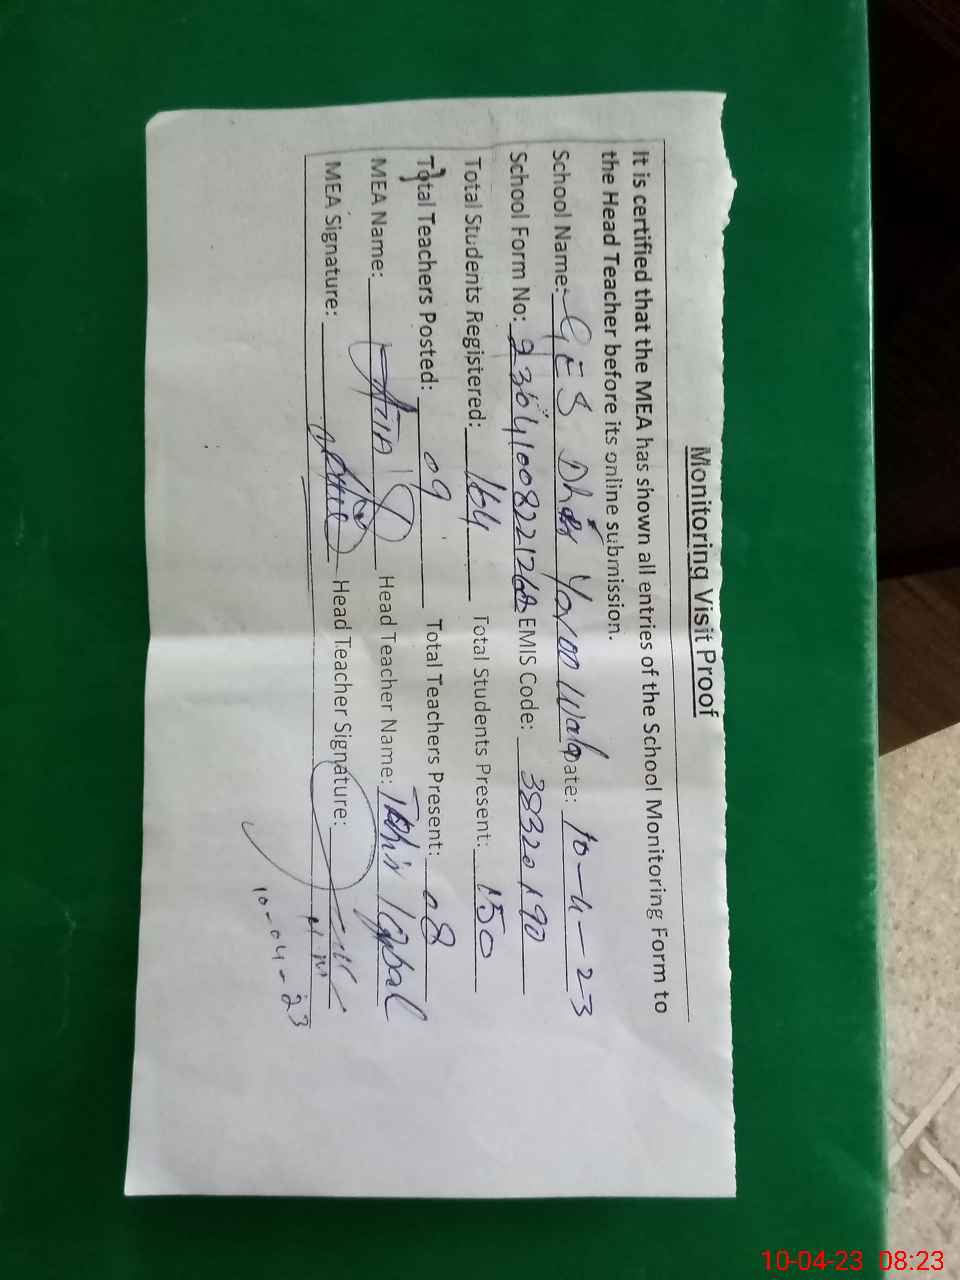 Monitoring Visit Proof
It is certified that the MEA has shown all entries of the School Monitoring Form to
the Head Teacher before its online submission.
School Name: GES Yaroo Wala Date: 10-4-23
School Form No: EMIS Code: 38320190
Total Students Registered: 164 Total Students Present: 150
Total Teachers Posted: 09 Total Teachers Present: 08
MEA Name: Head Teacher Name: Tahir Iqbal
MEA Signature: Head Teacher Signature:
10-04-23
10-04-23 08:23